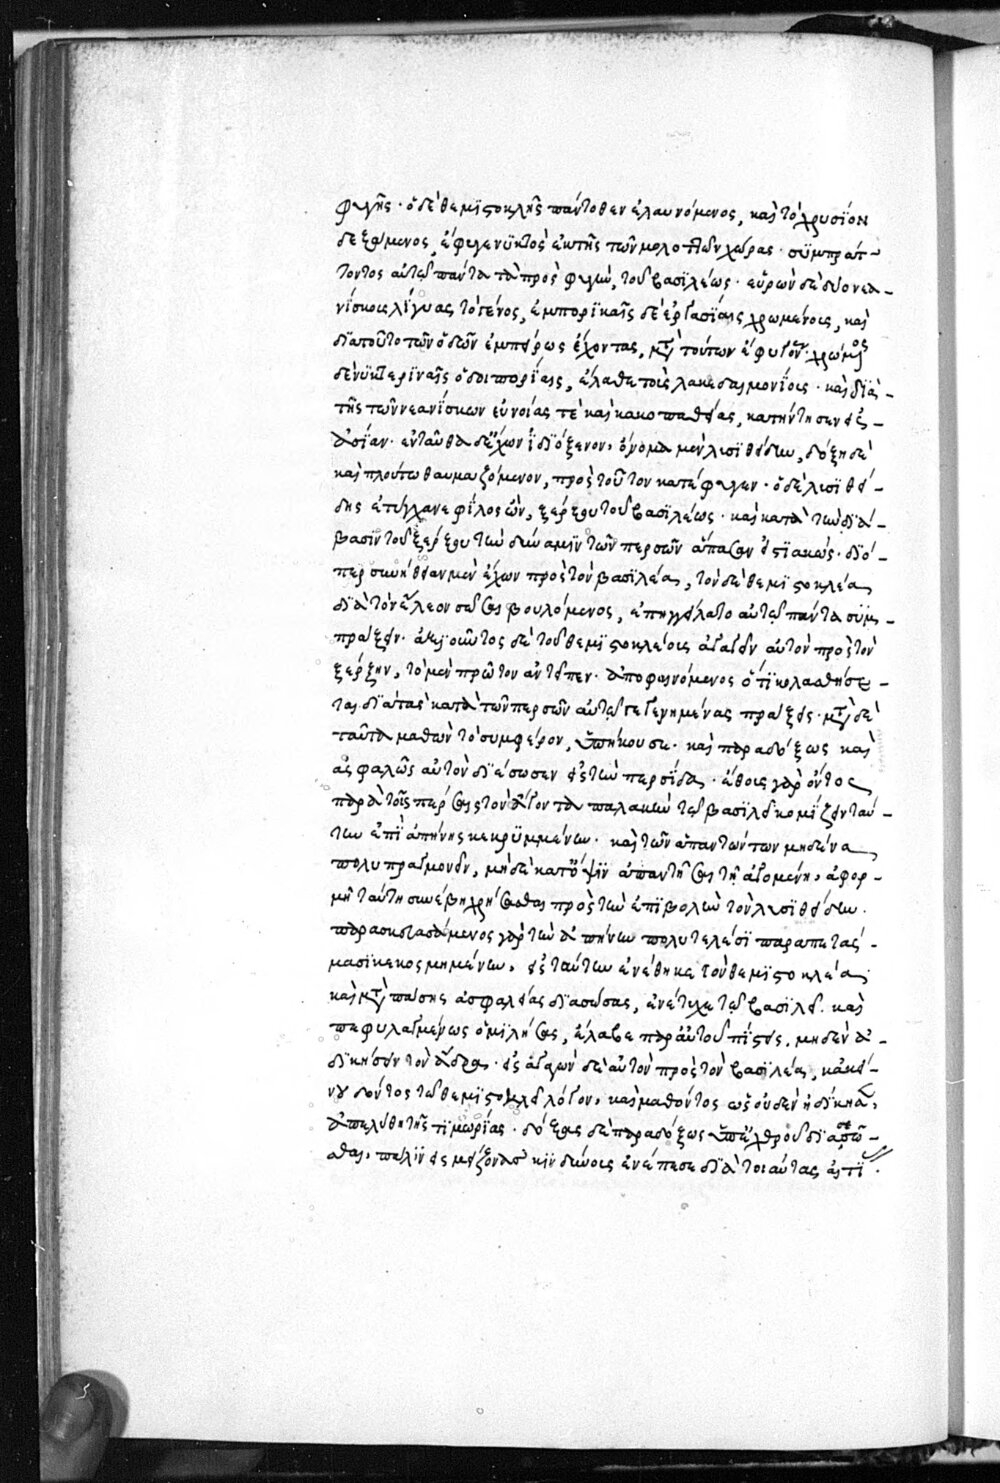 φυγῆς · ὁ δὲ θεμιστοκλῆς πάντοθεν ἐλαυνόμενος, καὶ τὸ χρυσίον
δεξάμενος, ἔφυγε νυκτὸς ἐκ τῆς τῶν μολοττῶν χώρας · συμπράτ-
τοντος αὐτῷ πάντα τὰ πρὸς φυγὴν, τοῦ βασιλέως · εὑρὼν δὲ δύο νεα-
νίσκους λίγυας τὸ γένος, ἐμπορικαῖς δὲ ἐργασίαις χρωμένους, καὶ
διὰ τοῦτο τῶν ὁδῶν ἐμπείρως ἔχοντας, μετὰ τούτων ἔφυγεν · χρώμενος
δὲ νυκτεριναῖς ὁδοιπορίαις, ἔλαθε τοὺς λακεδαιμονίους · καὶ διὰ -
τῆς τῶν νεανίσκων εὐνοίας τὲ καὶ κακοπαθείας, κατήντησεν εἰς -
ἀσίαν · ἐνταῦθα δὲ ἔχων ἰδιόξενον, ὄνομα μὲν λυσιθείδην, δόξη δὲ
καὶ πλούτω θαυμαζόμενον, πρὸς τοῦτον κατέφυγεν · ὁ δὲ λυσιθεί-
δης ἐτύγχανε φίλος ὢν, ξέρξου τοῦ βασιλέως · καὶ κατὰ τὴν διά-
βασιν τοῦ ξέρξου τὴν δύναμιν τῶν περσῶν ἅπασαν εἱστιακώς · διό-
περ συνήθειαν μὲν ἔχων πρὸς τὸν βασιλέα, τὸν δὲ θεμιστοκλέα
διὰ τὸν ἔλεον σῶσαι βουλόμενος, ἐπηγγείλατο αὐτῷ πάντα συμ-
πράξειν · ἀξιοῦντος δὲ τοῦ θεμιστοκλέους ἀγαγεῖν αὐτὸν πρὸς τὸν
ξέρξην, τὸ μὲν πρῶτον ἀντεῖπεν · ἀποφαινόμενος ὅτι κολασθήσε-
ται διὰ τὰς κατὰ τῶν περσῶν αὐτῷ γεγενημένας πράξεις · μετὰ δὲ
ταῦτα μαθὼν τὸ συμφέρον, ὑπήκουσε · καὶ παραδόξως καὶ
ἀσφαλῶς αὐτὸν διέσωσεν εἰς τὴν περσίδα · ἔθους γὰρ ὄντος
παρὰ τοῖς πέρσαις τὸν ἄγοντα παλακὴν τῷ βασιλεῖ κομίζειν ταύ-
την ἐπὶ ἀπήνης κεκρυμμένην · καὶ τῶν ἀπαντώντων μηδένα
πολυπραγμονεῖν, μηδὲ κατ' ὄψιν ἀπαντῆσαι τῇ ἀγομένη, ἀφορ-
μῆ ταύτη συνέβη χρήσασθαι πρὸς τὴν ἐπιβολὴν τὸν λυσιθείδην ·
παρασκευασάμενος γὰρ τὴν ἀπήνην πολυτελέσι παραπετάσ-
μασι κεκοσμημένην, εἰς ταύτην ἐνέθηκε τὸν θεμιστοκλέα
καὶ μετὰ πάσης ἀσφαλείας διασώσας, ἐνέτυχε τῷ βασιλεῖ · καὶ
πεφυλαγμένως ὁμιλήσας, ἔλαβε παρ' αὐτοῦ πίστεις, μηδὲν ἀ-
δικήσειν τὸν ἄνδρα · εἰσαγαγὼν δὲ αὐτὸν πρὸς τὸν βασιλέα, κἀκεί-
νου δόντος τῷ θεμιστοκλεῖ λόγον, καὶ μαθόντος ὡς οὐδὲν ἠδίκησεν,
ἀπελύθη τῆς τιμωρίας · δόξας δὲ παραδόξως ὑπ' ἐχθροῦ διασῶ-
σθαι, πάλιν εἰς μείζονας κινδύνους ἐνέπεσε διὰ τοιαύτας αἰτί